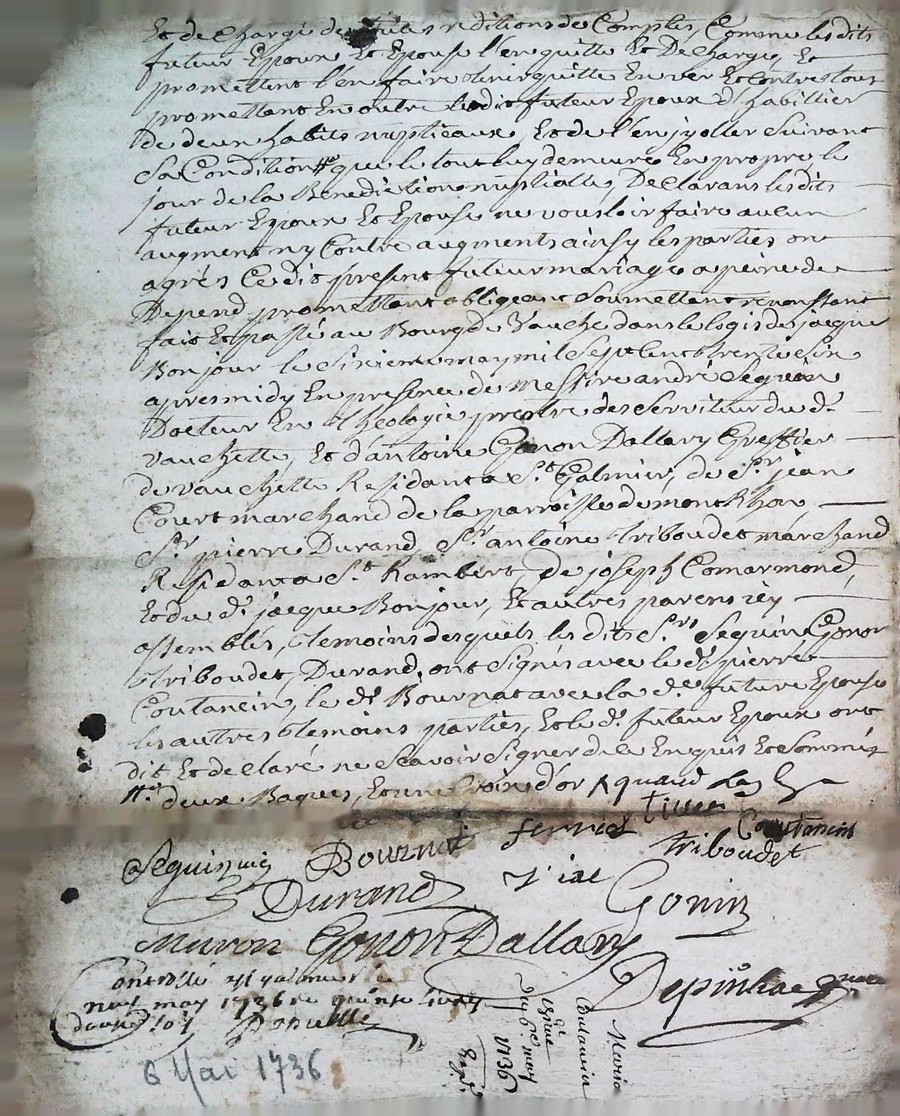 Et de charge de reditions de Comptes Comme lesdits
futeur Epoux Et Epouse l'en quitte Et Decharge Et
promettent l'en faire tenir quitte Enver Et contre tous
promettant En outre ledit futeur Epoux d'habillier
de deux habits nuptieaux, Et de l'enjoller suivant
sa Condition # que le tout luy demeure En propre le
jour de la Benediction nuptialle, Declarans lesdits
futeur Epoux Et Epouse ne vousloir faire aucun
augment ny Contre augments ainsy les parties ont
agrés Ce dit present futeur mariage a peine de
Depend promettant obligeant soumettant renonssant
fait Et passé au Bourg de Vauche dans le logis de jacque
Bonjour le sixieme may mil sept Cent trente six
apres midy En presence de messire andré Seguin
Docteur En theologie prestre deserviteur du d.
vauchette, Et d'antoine Gonon Dallary Greffier
de vauchette Residant a S.t Galmier, de S.r jean
Court marchand de la parroisse de mont Rhon
S.r pierre Durand, S.r antoine triboudet marchand
Residant a S.t Rambert, de joseph Comarmond,
Et du d. jacque Bonjour, Et autres parens icy
assemblés, temoins desquels lesdits S.rs Seguin Gonon
triboudet, Durand, ont signés avec le d. pierre
Coutancin, le d. Bournat avec la d.e future Epouse
les autres temoins parties, Et le d. futeur Epoux ont
dit Et declaré ne scavoir signer de ce Enquis Et sommés
# deux Bagues, Et une Croix d'or
Coutancin
Seguin Bournat ferriol triboudet
Durand Gonin
Muron Gonon Dallary
Controllé a S.t galmier le
neuf may 1736 re quinze livre
Depinhac
6.e may
1736
6 Mai 1736